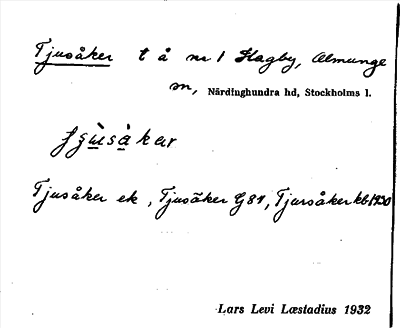 Tjusåker t å nr 1 Hagby, Almunge
sn, Närdinghundra hd, Stockholms l.
Tjusåker ek, Tjusåker G 84, Tjursåker kb 1930
Lars Levi Læstadius 1932